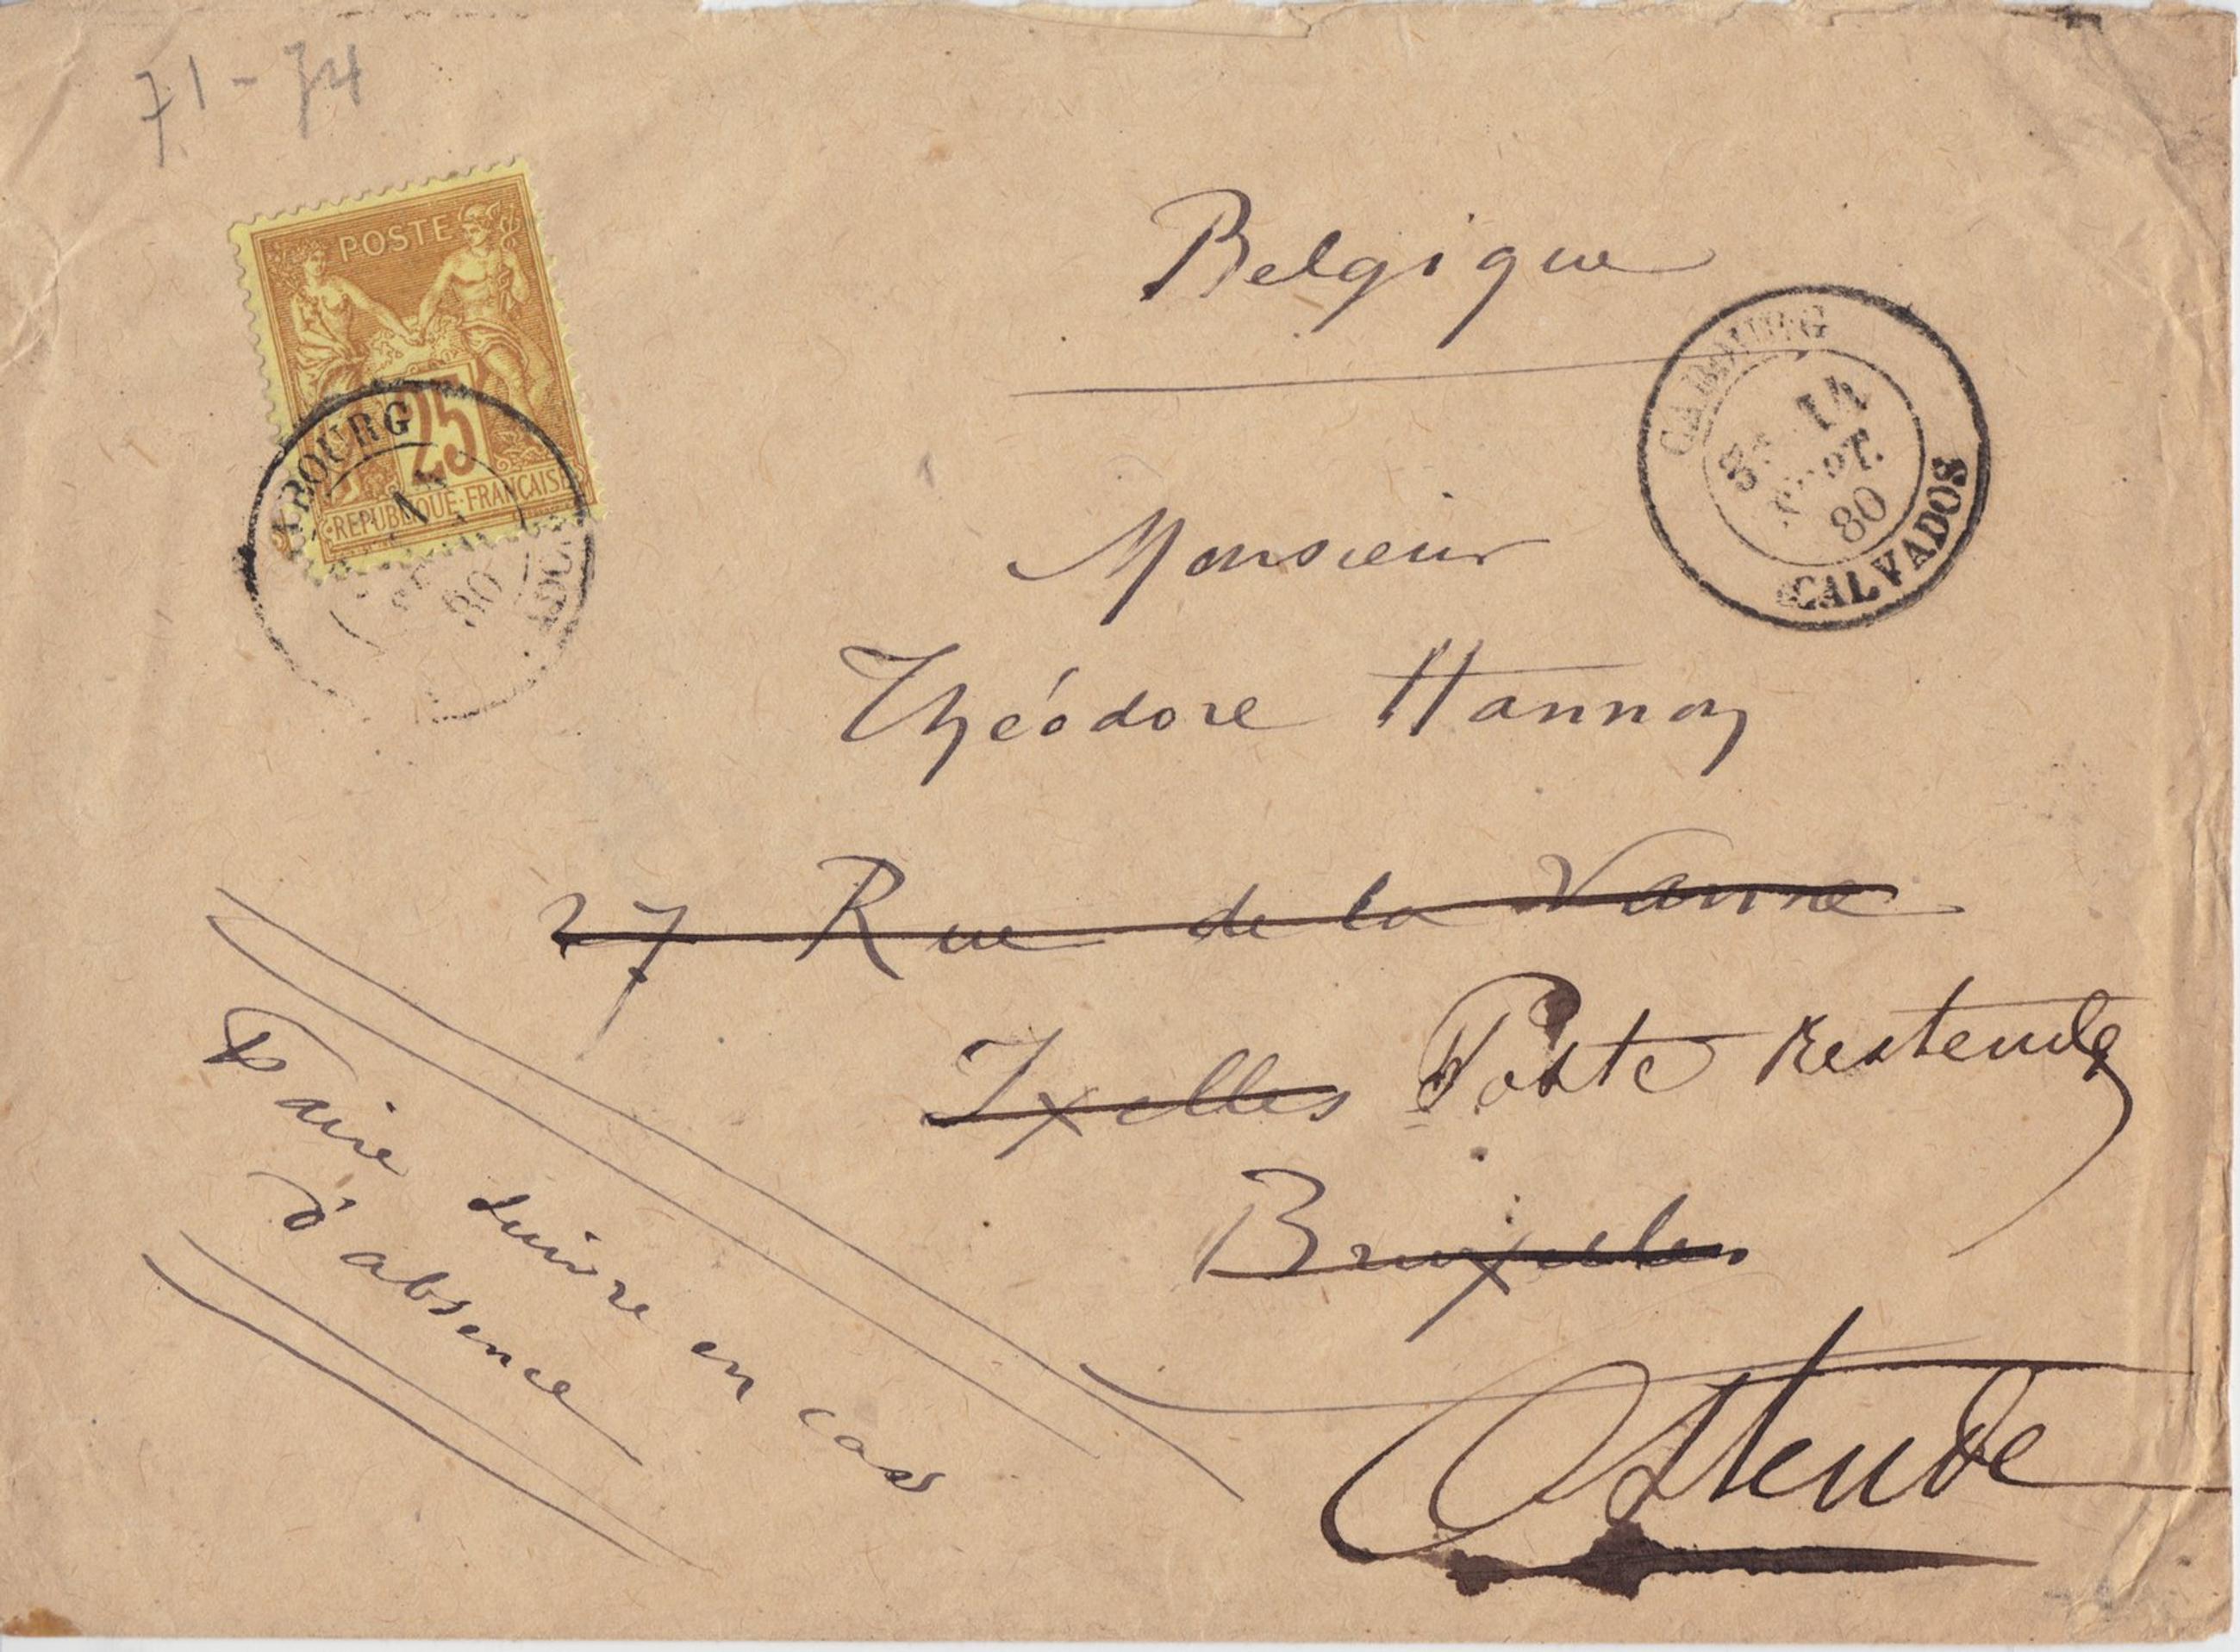 71-74
POSTE
25
REPUBLIQUE FRANÇAISE
BOURG
80
Belgique
CABOURG
14
SEPT.
80
CALVADOS
Monsieur
Théodore Hannon
27 Rue de la Vanne
Ixelles Poste Restende
Bruxelles
Ostende
Faire suivre en cas
d'absence